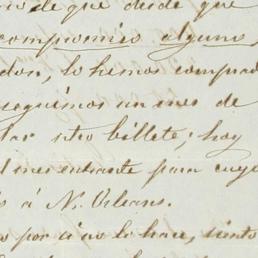 de que desde que
compromiso alguno,
lo hemos comprad
seguimos un mes de
lar otro billete; hoy
l mes entrante para cuyo
à N. Orleans.
por si no lo hace, siento